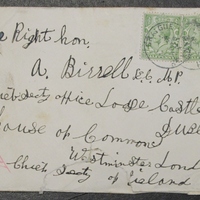 e Right Hon.
A. Birrell K.C. M.P.
Chief Secty office Lodge Castle
House of Commons
Westminster London
Chief Secty of Ireland